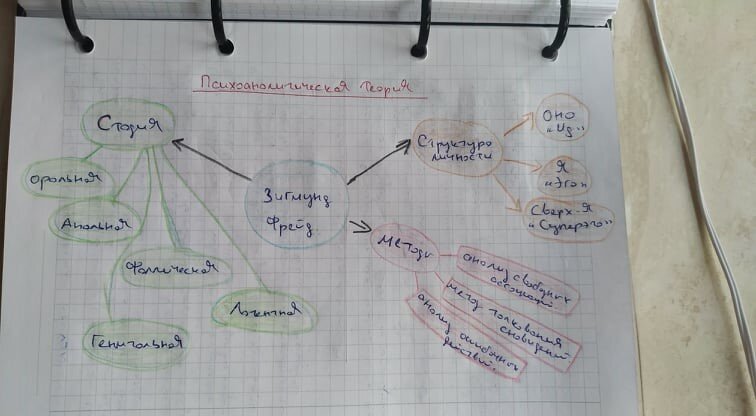 Психоаналитическая теория
Стадия
Оральная
Анальная
Фаллическая
Латентная
Генитальная
Зигмунд
Фрейд
Структура
личности
Оно
"Ид"
Я
"Эго"
Сверх-Я
"Суперэго"
Методы
анализ свободных
ассоциаций
метод толкования
сновидений
анализ ошибочных
действий.